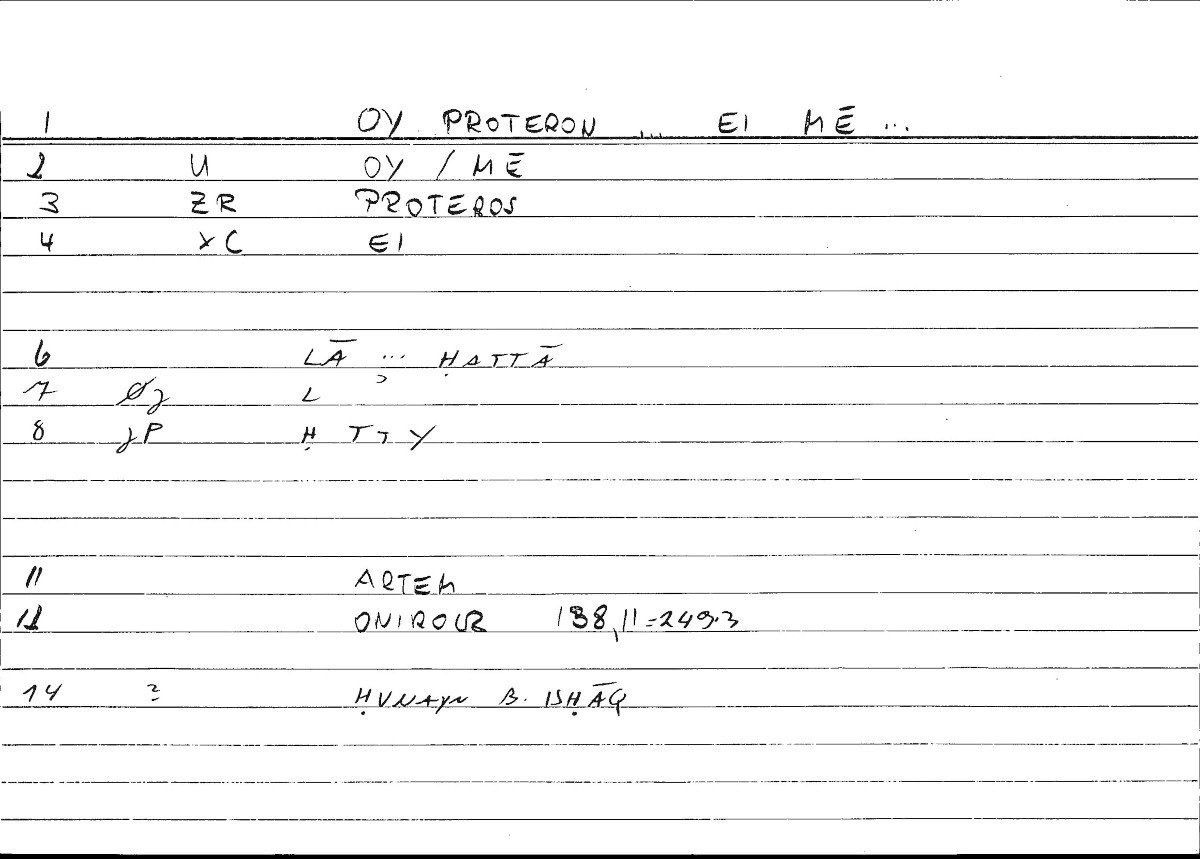 1 OY PROTERON ... EI MĒ ...
2 U OY / MĒ
3 ZR PROTEROS
4 XC EI
6 LĀ ... ḤATTĀ
7 Øj L
8 jP Ḥ TTY
11 ARTEM
12 ONIROCR 138,11=249.3
14 ? ḤUNAYN B. ISḤĀQ